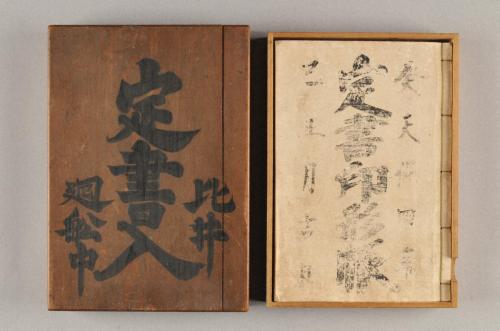 比井
定書入
廻船中
天保四年
定書印形帳
巳正月吉日